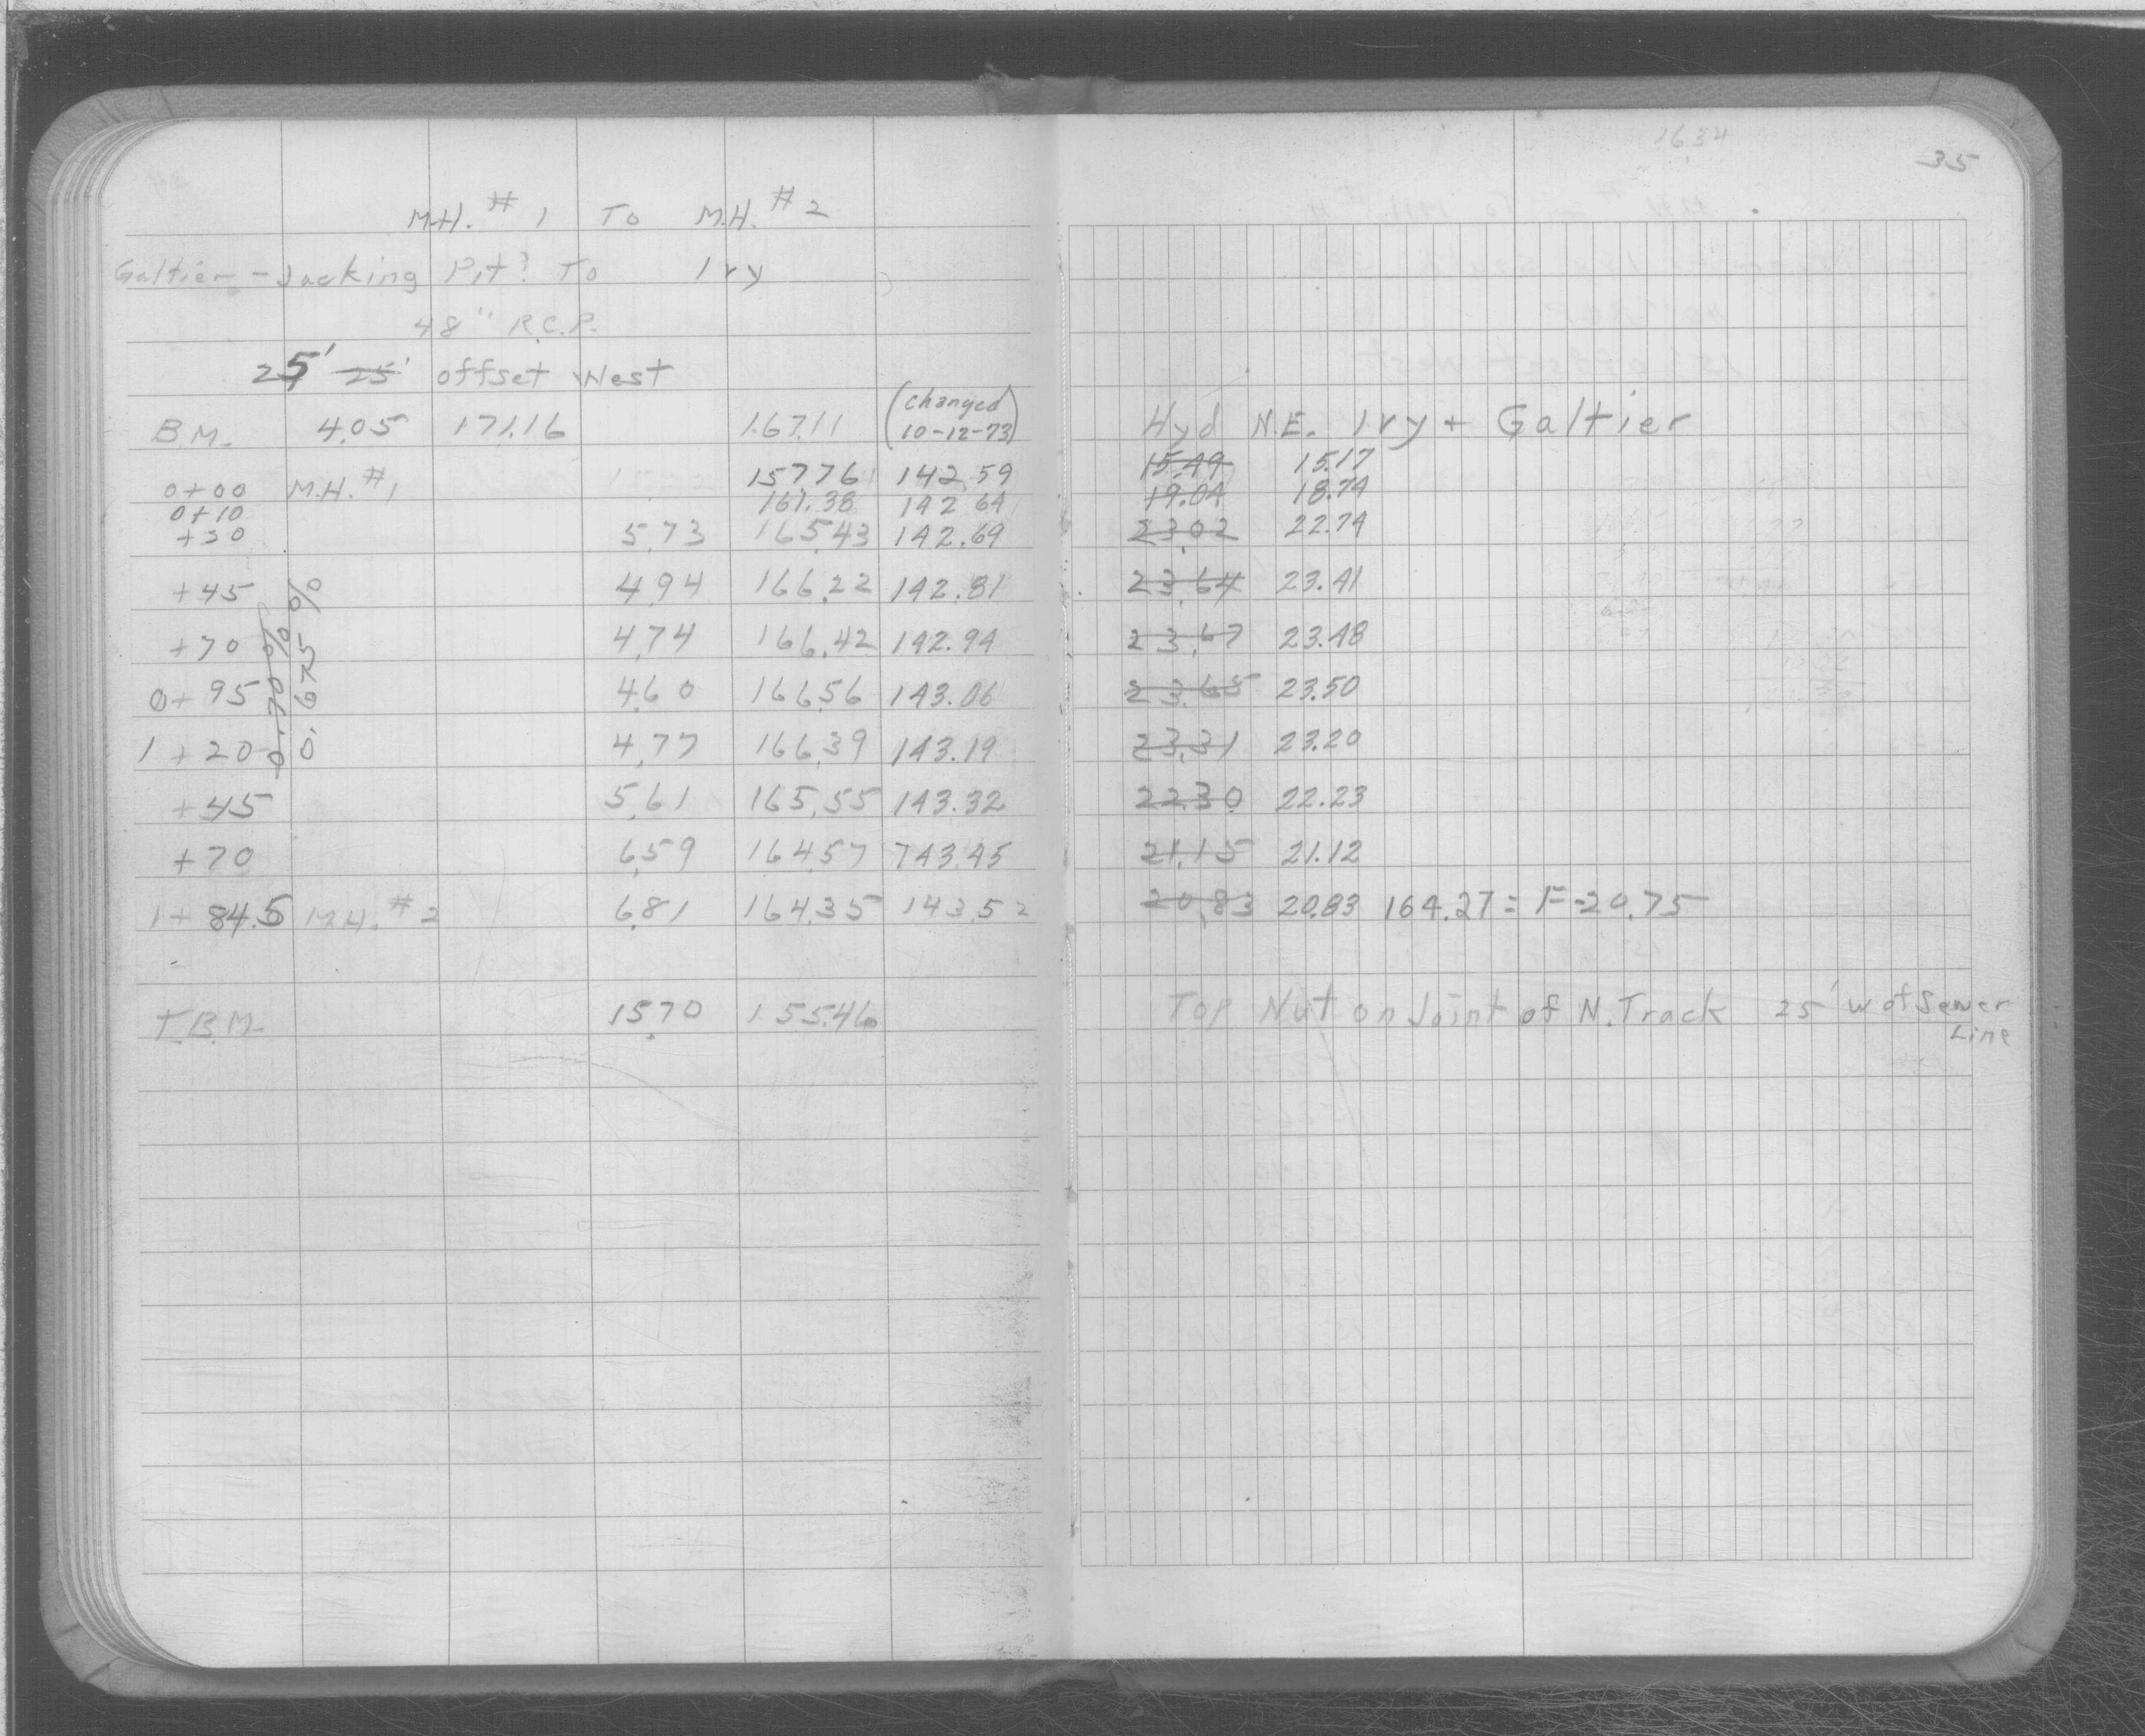 1634
35
M.H. #1 To M.H. #2
Galtier - Jacking Pit? To Ivy
48" R.C.P.
25' 25' offset West
B.M. 4.05 171.16 167.11 (changed 10-12-73) Hyd N.E. Ivy + Galtier
0+00 M.H. #1 157.76 142.59 15.49 15.17
0+10 161.38 142.64 19.04 18.74
+30 5.73 165.43 142.69 23.02 22.74
+45 4.94 166.22 142.81 23.64 23.41
+70 4.74 166.42 142.94 23.67 23.48
0+95 4.60 166.56 143.06 23.65 23.50
1+20 4.77 166.39 143.19 23.31 23.20
0.70% 0.675%
+45 5.61 165.55 143.32 22.30 22.23
+70 6.59 164.57 143.45 21.15 21.12
1+84.5 M.H. #2 6.81 164.35 143.52 20.83 20.83 164.27 = F-20.75
T.B.M. 15.70 155.46 Top Nut on Joint of N. Track 25' W of Sewer
Line